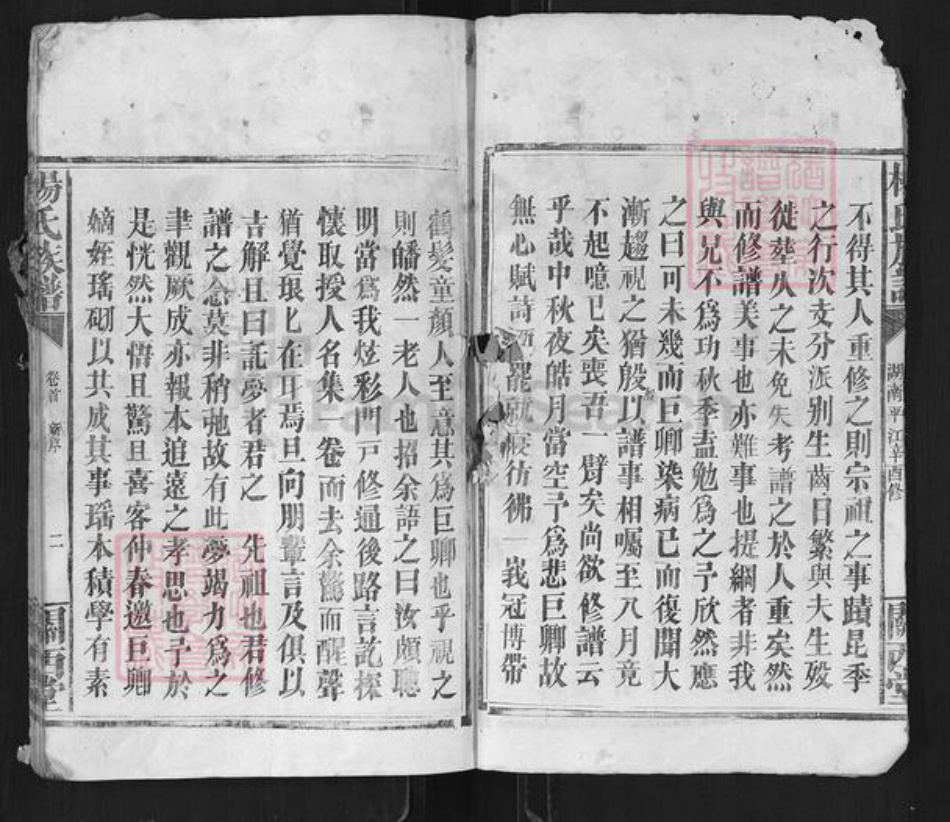 湖南平江辛酉修
不得其人重修之則宗祖之事蹟昆季
之行次支分派别生齒日繁與夫生殁
徙塟久之未免失考譜之於人重矣然
而修譜美事也亦難事也提綱者非我
與兄不爲功秋季盍勉爲之予欣然應
之曰可未幾而巨卿染病已而復聞大
漸趨視之猶殷以譜事相囑至八月竟
不起噫已矣喪吾一臂矣尚欲修譜云
乎哉中秋夜皓月當空予爲悲巨卿故
無心賦詩 罷就寢彷彿一峩冠博帶
鶴髮童顏人至意其爲巨卿也乎視之
則皤然一老人也招余語之曰汝頗聰
明當爲我炫彩門戸修通後路言訖探
懷取授人名集一卷而去余驚而醒聲
猶覺琅匕在耳焉旦向朋輩言及俱以
吉解且曰託夢者君之 先祖也君修
譜之念莫非稍弛故有此夢竭力爲之
聿觀厥成亦報本追遠之孝思也予於
是恍然大悟且驚且喜客仲春邀巨卿
嫡姪瑤砌以共成其事瑤本積學有素
楊氏族譜
卷首 新序
二
關西堂